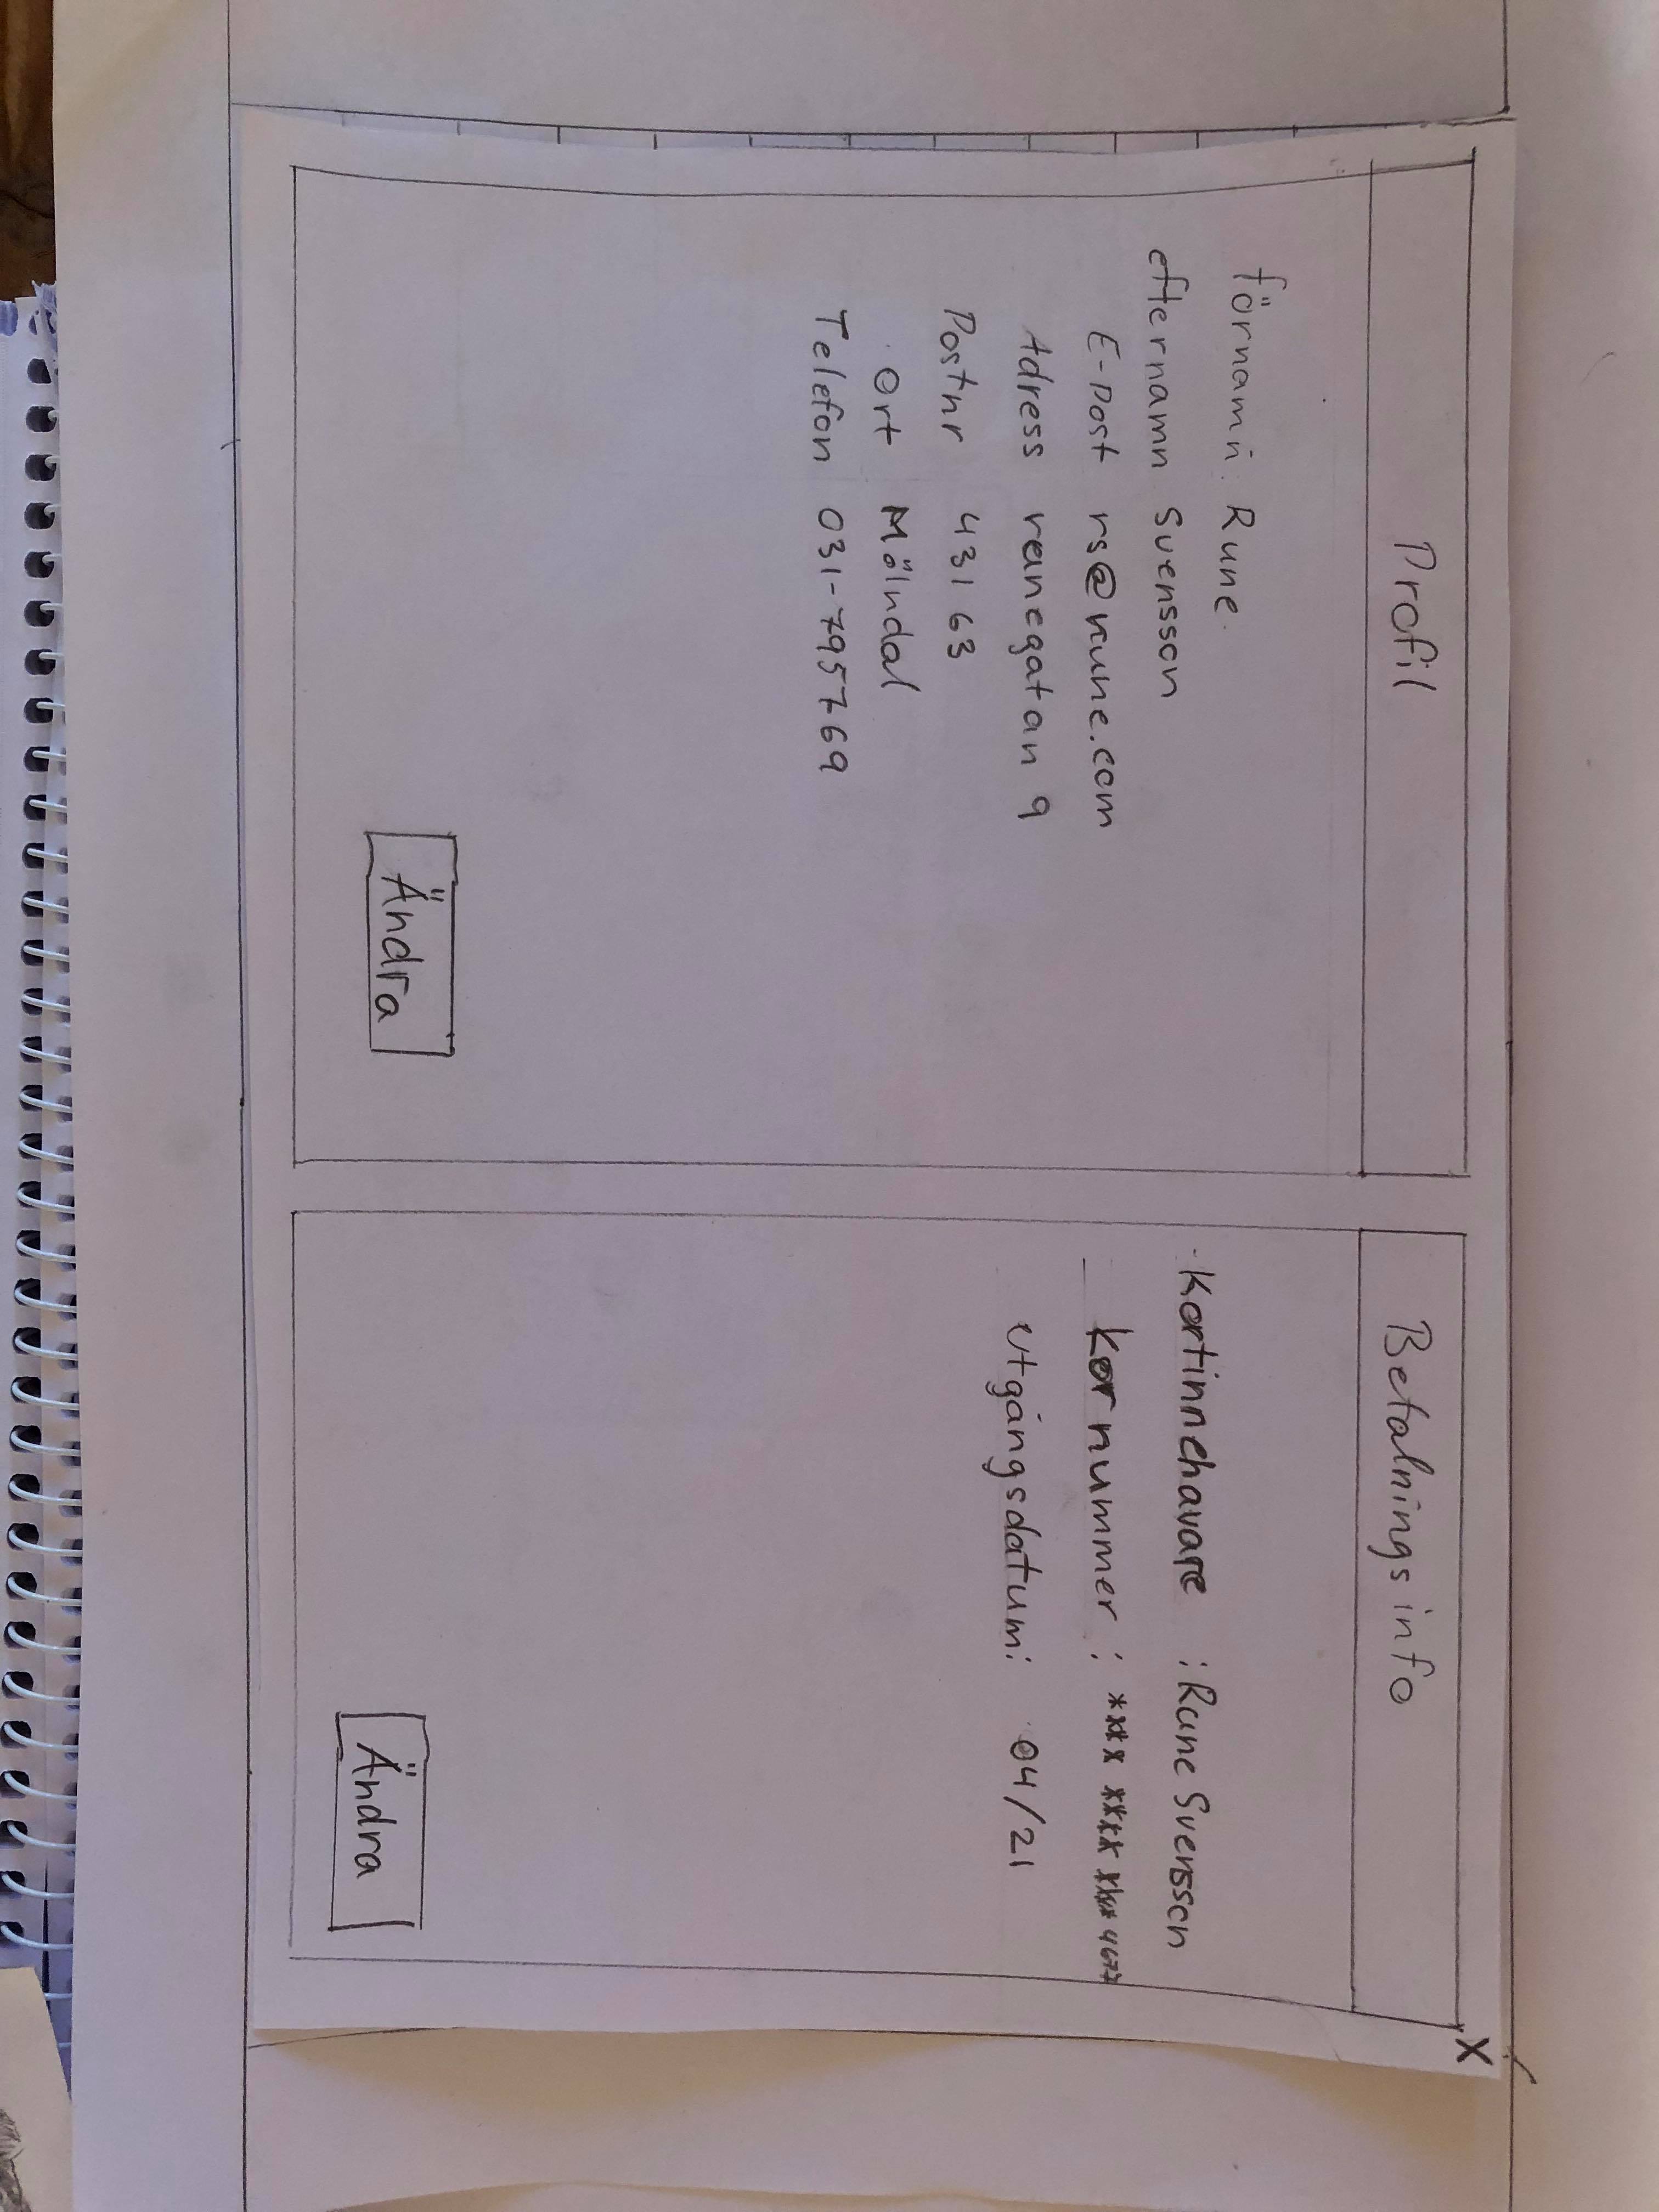 Profil
förnamn: Rune
efternamn Svensson
E-Post rs@rune.com
Adress
Postnr 431 63
Ort Mölndal
Telefon 031-7957769
Ändra
X
Betalnings info
Kortinnehavare : Rune Svensson
Kornummer : **** **** **** 4677
Utgångsdatum: 04/21
Ändra